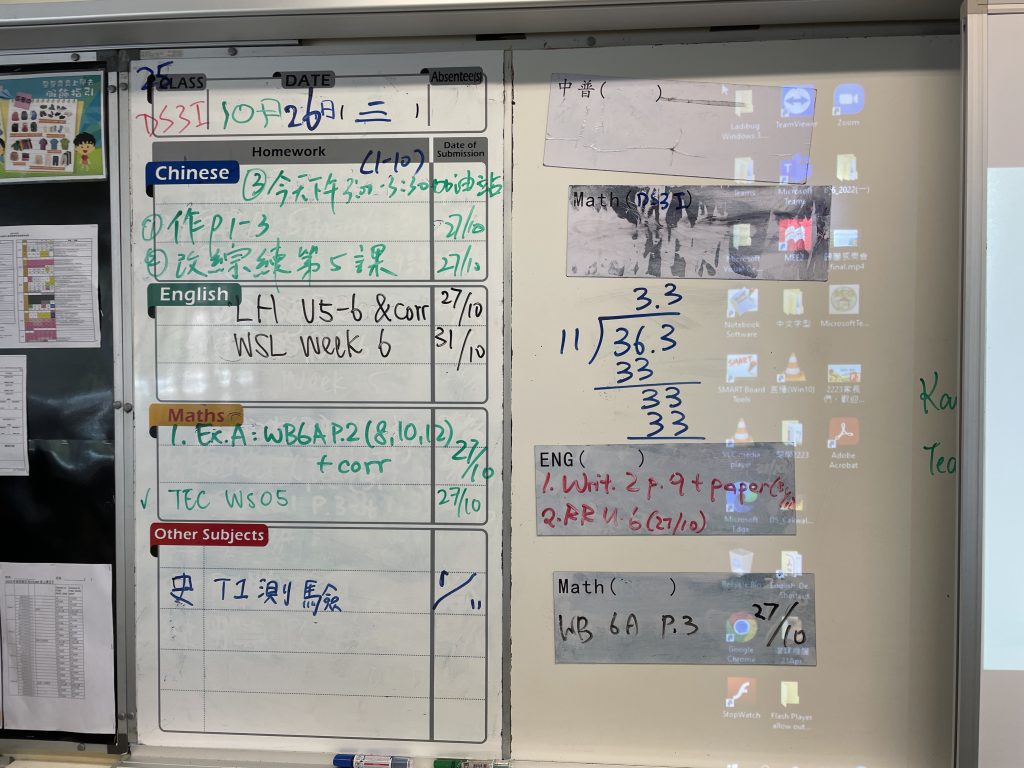 25
CLASS DATE Absentee(s)
DS3I 10月26日( 三 )
Homework Date of Submission
(1-10)
Chinese
③今天下午3:00-3:30加油站
① 作P1-3 27/10
改綜練第5課 27/10
English
LH U5-6 & corr 27/10
WSL Week 6 31/10
Maths
1. Ex.A: WB6A P.2 (8,10,12) 27/10
+ corr
✓ TEC WS05 27/10
Other Subjects
史 T1 測驗 1/11
中普( )
Math(DS3I)
3.3
11 36.3
33
33
33
ENG( )
1. Writ. 2 p.9 + paper
2. RR U.6 (27/10)
Math( )
WB 6A P.3 27/10
Ladibug Windows 3....
TeamViewer
Zoom
Teams
Microsoft Teams
Notebook Software
中文字型
MicrosoftTe...
SMART Board Tools
VLC media player
Adobe Acrobat
Microsoft Edge
Google Chrome
StopWatch
Flash Player allow out...
服飾指引